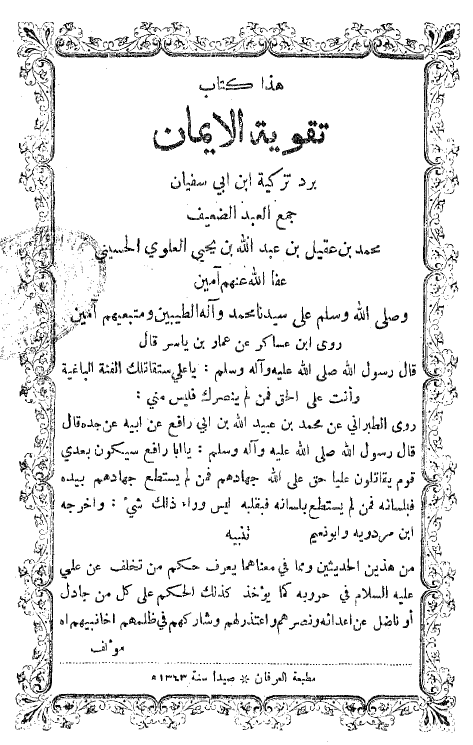 هذا كتاب
تقوية الايمان
برد تزكية ابن ابي سفيان
جمع العبد الضعيف
محمد بن عقيل بن عبد الله بن يحيى العلوي الحسيني
عفا الله عنهم آمين
وصلى الله وسلم على سيدنا محمد وآله الطيبين ومتبعيهم آمين
روى ابن عساكر عن عمار بن ياسر قال
قال رسول الله صلى الله عليه وآله وسلم : ياعلي ستقاتلك الفئة الباغية
وأنت على الحق فمن لم ينصرك فليس مني :
روى الطبراني عن محمد بن عبيد الله بن ابي رافع عن ابيه عن جده قال
قال رسول الله صلى الله عليه وآله وسلم : ياابا رافع سيكون بعدي
قوم يقاتلون عليا حق على الله جهادهم فمن لم يستطع جهادهم بيده
فبلسانه فمن لم يستطع بلسانه فبقلبه ليس وراء ذلك شيء : واخرجه
ابن مردويه وابونعيم تنبيه
من هذين الحديثين ومما في معناهما يعرف حكم من تخلف عن علي
عليه السلام في حروبه كما يؤخذ كذلك الحكم على كل من جادل
أو ناضل عن اعدائه ونصرهم واعتذر لهم وشاركهم في ظلمهم اه
مؤلف
مطبعة العرفان * صيدا سنة ١٣٤٣ ه